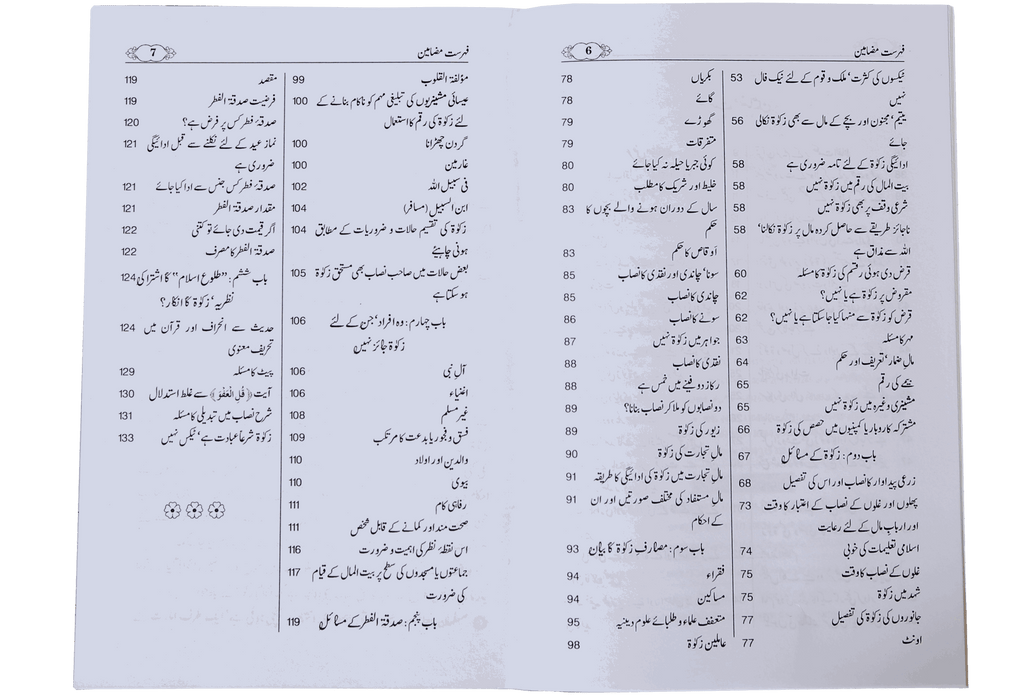 فہرست مضامین
6
ٹیکسوں کی کثرت‘ ملک و قوم کے لئے نیک فال 53
نہیں
یتیم‘ مجنون اور بچے کے مال سے بھی زکوٰۃ نکالی 56
جائے
ادائیگی زکوٰۃ کے لئے تامہ ضروری ہے 58
بیت المال کی رقم میں زکوٰۃ نہیں 58
شرعی وقف پر بھی زکوٰۃ نہیں 58
ناجائز طریقے سے حاصل کردہ مال پر زکوٰۃ نکالنا‘ 58
اللہ سے مذاق ہے
قرض دی ہوئی رقم کی زکوٰۃ کا مسئلہ 60
مقروض پر زکوٰۃ ہے یا نہیں؟ 62
قرض کو زکوٰۃ سے منہا کیا جا سکتا ہے یا نہیں؟ 62
مہر کا مسئلہ 63
مالِ ضمار‘ تعریف اور حکم 64
بیمے کی رقم 65
مشینری وغیرہ میں زکوٰۃ نہیں 65
مشترکہ کاروبار یا کمپنیوں میں حصص کی زکوٰۃ 66
باب دوم: زکوٰۃ کے مسائل 67
زرعی پیداوار کا نصاب اور اس کی تفصیل 68
پھلوں اور غلوں کے نصاب کے اعتبار کا وقت 73
اور اربابِ مال کے لئے رعایت
اسلامی تعلیمات کی خوبی 74
غلوں کے نصاب کا وقت 75
شہد میں زکوٰۃ 75
جانوروں کی زکوٰۃ کی تفصیل 77
اونٹ 77
بکریاں 78
گائے 78
گھوڑے 79
متفرقات 79
کوئی جبر یا حیلہ نہ کیا جائے 80
خلیط اور شریک کا مطلب 80
سال کے دوران ہونے والے بچوں کا 83
حکم
اوقاص کا حکم 83
سونا‘ چاندی اور نقدی کا نصاب 85
چاندی کا نصاب 85
سونے کا نصاب 86
جواہر میں زکوٰۃ نہیں 87
نقدی کا نصاب 88
رکاز دفینے میں خمس ہے 88
دو نصابوں کو ملا کر نصاب بنانا؟ 89
زیور کی زکوٰۃ 89
مالِ تجارت کی زکوٰۃ 90
مالِ تجارت میں زکوٰۃ کی ادائیگی کا طریقہ 91
مالِ مستفاد کی مختلف صورتیں اور ان 91
کے احکام
باب سوم: مصارفِ زکوٰۃ کا بیان 93
فقراء 94
مساکین 94
متعفف علماء و طلبائے علوم دینیہ 95
عاملین زکوٰۃ 98
فہرست مضامین
7
مؤلفۃ القلوب 99
عیسائی مشینریوں کی تبلیغی مہم کو ناکام بنانے کے 100
لئے زکوٰۃ کی رقم کا استعمال
گردن چھڑانا 100
غارمین 100
فی سبیل اللہ 102
ابن السبیل (مسافر) 104
زکوٰۃ کی تقسیم حالات و ضروریات کے مطابق 104
ہونی چاہئے
بعض حالات میں صاحب نصاب بھی مستحق زکوٰۃ 105
ہو سکتا ہے
باب چہارم: وہ افراد‘ جن کے لئے 106
زکوٰۃ جائز نہیں
آلِ نبی 106
اغنیاء 106
غیر مسلم 108
فسق و فجور یا بدعت کا مرتکب 109
والدین اور اولاد 110
بیوی 110
رفاہی کام 111
صحت مند اور کمانے کے قابل شخص 111
اس نقطۂ نظر کی اہمیت و ضرورت 116
جماعتوں یا مسجدوں کی سطح پر بیت المال کے قیام 117
کی ضرورت
باب پنجم: صدقۃ الفطر کے مسائل 119
مقصد 119
فرضیت صدقۃ الفطر 119
صدقۂ فطر کس پر فرض ہے؟ 120
نماز عید کے لئے نکلنے سے قبل ادائیگی 121
ضروری ہے
صدقۂ فطر کس جنس سے ادا کیا جائے 121
مقدار صدقۃ الفطر 121
اگر قیمت دی جائے تو کتنی 122
صدقۃ الفطر کا مصرف 122
باب ششم: ”طلوع اسلام“ کا اشتراکی 124
نظریہ‘ زکوٰۃ کا انکار؟
حدیث سے انحراف اور قرآن میں 124
تحریف معنوی
پیٹ کا مسئلہ 129
آیت ﴿قُلِ الْعَفْوَ﴾ سے غلط استدلال 130
شرح نصاب میں تبدیلی کا مسئلہ 131
زکوٰۃ شرعاً عبادت ہے‘ ٹیکس نہیں 133